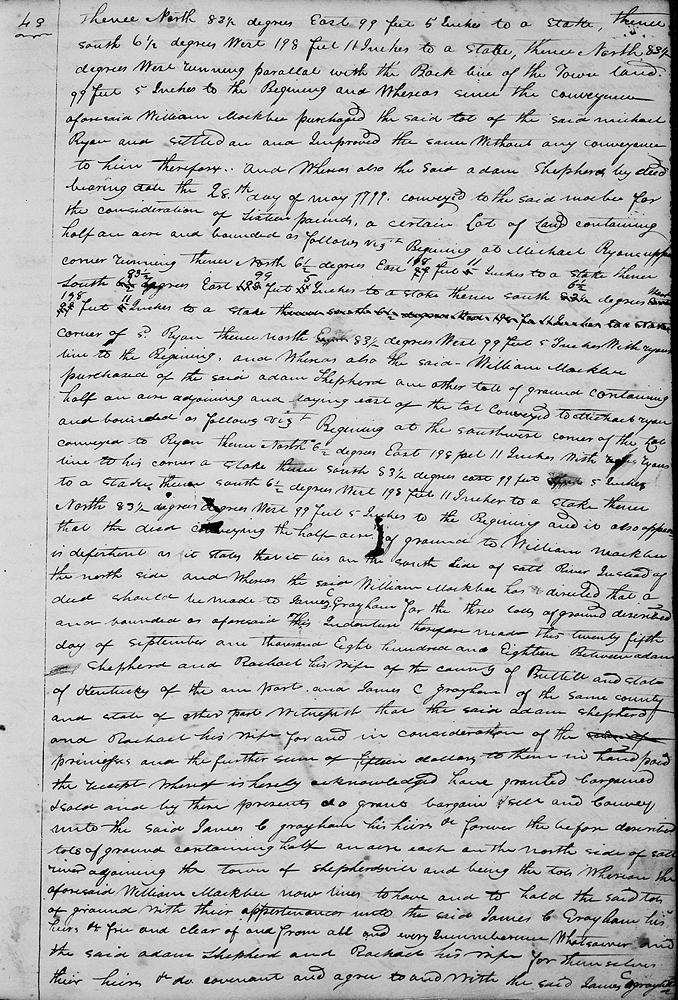 43
thence North 83½ degrees East 99 feet 5 Inches to a stake, thence
south 6½ degrees West 198 feet 11 Inches to a stake, thence North 83½
degrees West running parallal with the Back line of the Town land
99 feet 5 Inches to the Begining and Whereas since the conveyence
aforesaid William Mackbee purchased the said lot of the said michael
Ryan and settled on and Improved the same Without any conveyance
to him therefore. and Whereas also the Said adam Shepherd by deed
bearing date the 28th day of may 1799. conveyed to the said macbee for
the consideration of sixteen pounds, a certain Lot of land containing
half an acre and bounded as follows vizt Begining at Michael Ryans upper
corner running thence North 6½ degrees East 198 feet 11 Inches to a stake thence
South 83½ degrees East 99 feet 5 Inches to a stake thence south 6½ degrees West
198 feet 11 Inches to a stake thence south 6½ degrees West 198 feet 11 Inches to a stake
corner of sd. Ryan thence north 83½ degrees West 99 feet 5 Inches With ryans
line to the Begining. and Whereas also the said William Mackbee
purchased of the said adam Shepherd one other lott of ground containing
half an acre adjoining and laying east of the lot Conveyed to Michael ryan
and bounded as follows vizt Begining at the southwest corner of the Lot
conveyed to Ryan thence North 6½ degrees East 198 feet 11 Inches With ryans
line to his corner a stake thence south 83½ degrees east 99 feet 5 Inches
to a stake, thence south 6½ degrees West 198 feet 11 Inches to a stake thence
North 83½ degrees West 99 feet 5 Inches to the Begining and it also appears
that the deed conveying the half acre of ground to William mackbee
is defertent as it states that it lies on the south side of salt River Instead of
the north side and Whereas the said William Mackbee has directed that a
deed should be made to James C Grayham for the three lots of ground described
and bounded as aforesaid This Indenture therefore made this twenty fifth
day of September one thousand Eight hundred and Eighteen Between adam
Shepherd and Rachael his wife of the county of Bullitt and state
of Kentucky of the one part. and James C grayham of the same county
and state of other part Witnesseth that the said adam shepherd
and Rachael his wife for and in consideration of the
primises and the further sum of fifteen dollars to them in hand paid
the receipt whereof is hereby acknowledged have granted bargained
& sold and by these presents do grant bargain & sell and Convey
unto the said James C grayham his heirs &c forever the before described
lots of ground containing half an acre each on the North side of salt
river adjoining the town of shepherdsville and being the lots Whereon the
aforesaid William Mackbee now lives to have and to hold the said lots
of ground With their appertenances unto the said James C Grayham his
heirs &c free and clear of and from all and every Incumberance Whatsoever and
the said adam Shepherd and Rachael his wife for themselves
their heirs &c do covenant and agree to and With the said James C grayham